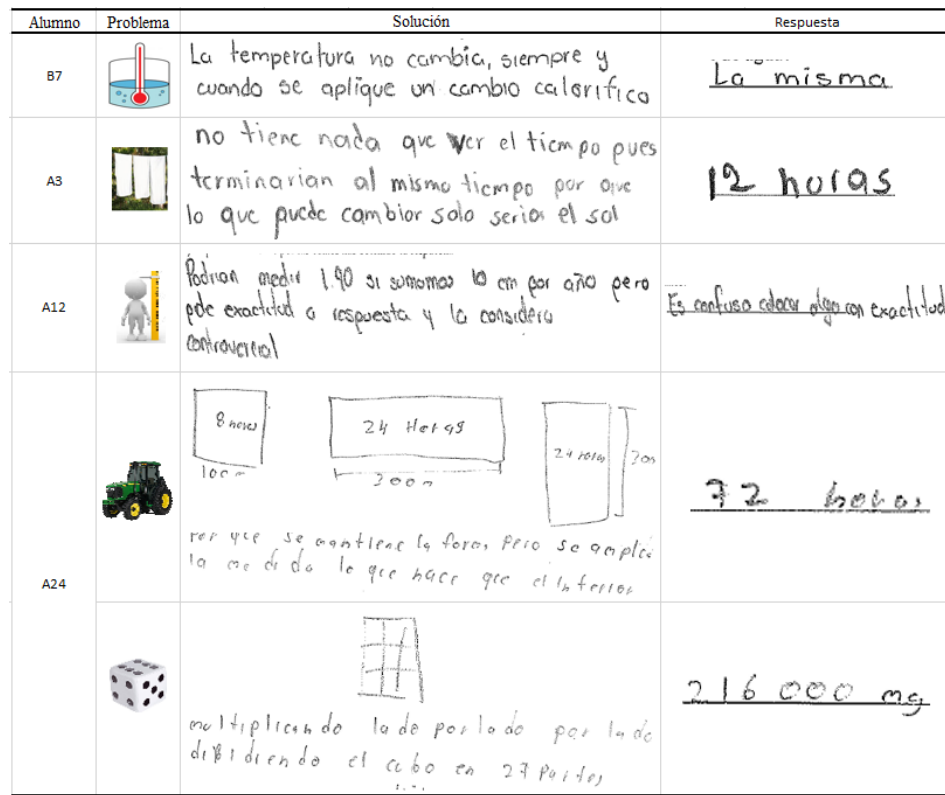 Alumno Problema Solución Respuesta
B7
La temperatura no cambia, siempre y
cuando se aplique un cambio calorifico
La misma
A3
no tiene nada que ver el tiempo pues
terminarian al mismo tiempo por que
lo que puede cambiar solo seria el sol
12 horas
A12
Podrian medir 1.90 si sumamos 10 cm por año pero
pide exactitud a respuesta y la considero
controversial
Es confuso colocar algo con exactitud
A24
8 horas
100 m
24 Horas
300 m
24 horas
300
ver que se mantiene la forma pero se amplia
la medida lo que hace que el interior
72 horas
multiplicando lado por lado por lado
dibidiendo el cubo en 27 Partes
216 000 mg